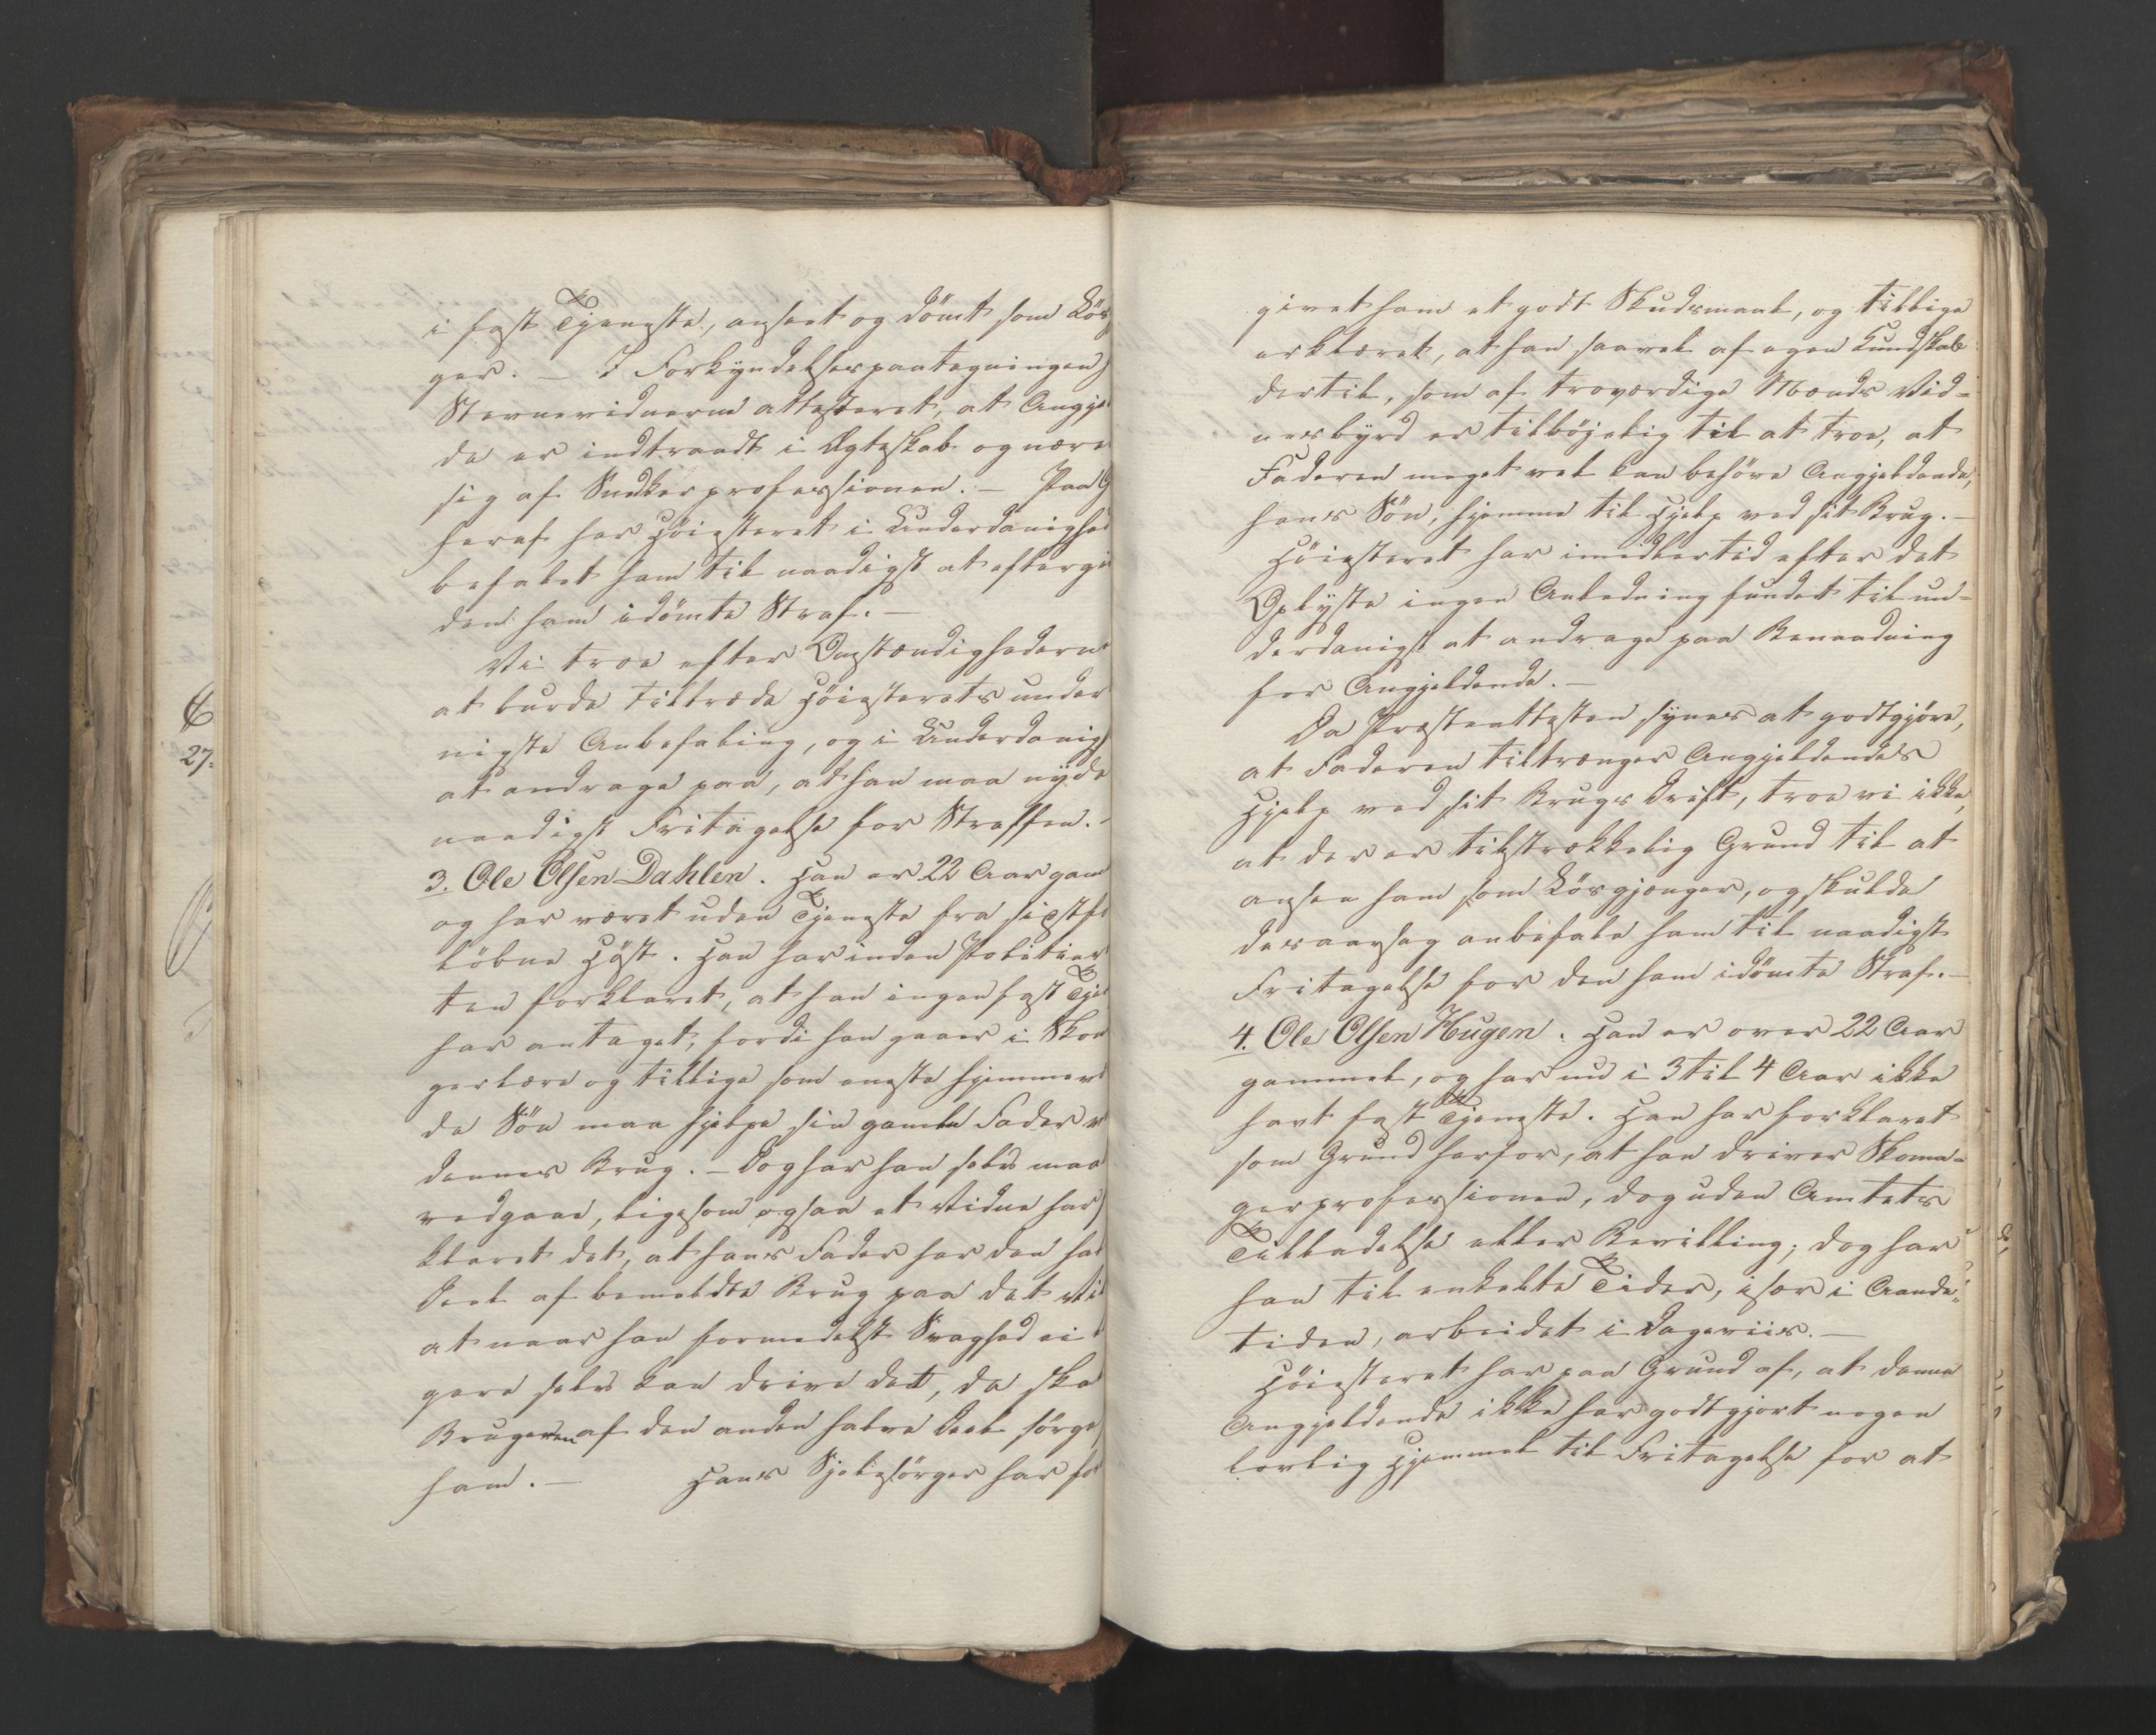 i fast Tjeneste, anseet og dömt som Lös
ger. – I Forkyndelsespaategningen
Stevnevidnerne attesteret, at Angje
de er indtraadt i Ægteskab og nære
sig af Snedkerprofessionen. – Paa G
heraf har Höiesteret i Underdanighed
befalet ham til naadigst at eftergi
den ham idömte Straf. –
Vi troe efter Omstændighederne
at burde tiltræde Höiesterets under
nigste Anbefaling, og i Underdanig
at andrage paa, at han maa nyde
naadigst Fritagelse for Straffen. –
3. Ole Olsen Dahlen. Han er 22 Aar gam
og har været uden Tjeneste fra sidstfo
löbne Höst. Han har inden Politiere
ten forklaret, at han ingen fast Tje
har antaget, fordi han gaaer i Skom
gerlære og tillige som eneste hjemmev
de Sön maa hjelpe sin gamle Fader v
dennes Brug. – Dog har han selv maa
vedgaae, ligesom ogsaa et Vidne har
klaret det, at hans Fader har den hal
Deel af bemeldte Brug paa det Vi
at naar han formedelst Svaghed ei l
gere selv kan drive det, da skal
Brugeren af den anden halve Deel sörge
ham. – Hans Sjelesörger har fo
givet ham et godt Skudsmaal, og tillige
erklæret, at han saavel af egen Kundskab
dertil, som af troværdige Mænds Vid-
nesbyrd er tilböjelig til at troe, at
Faderen meget vel kan behöve Angjeldende,
hans Sön, hjemme til Hjelp ved sit Brug. –
Höiesteret har imidlertid efter det
Oplyste ingen Anledning fundet til un-
derdanigst at andrage paa Benaadning
for Angjeldende. –
Da Præsteattesten synes at godtgjöre,
at Faderen tiltrænger Angjeldendes
Hjelp ved sit Brugs Drift, troe vi ikke,
at der er tilstrækkelig Grund til at
ansee ham som Lösgjænger, og skulde
desaarsag anbefale ham til naadigst
Fritagelse for den ham idömte Straf. –
4. Ole Olsen Haugen. Han er over 22 Aar
gammel, og har nu i 3 til 4 Aar ikke
havt fast Tjeneste. Han har forklaret
som Grund herfor, at han driver Skoma-
gerprofessionen, dog uden Amtets
Tilladelse eller Bevilling; dog har
han til enkelte Tider, især i Aande-
tiden, arbeidet i Dageviis. –
Höiesteret har paa Grund af, at denne
Angjeldende ikke har godtgjort nogen
lovlig Hjemmel til Fritagelse for at
27.